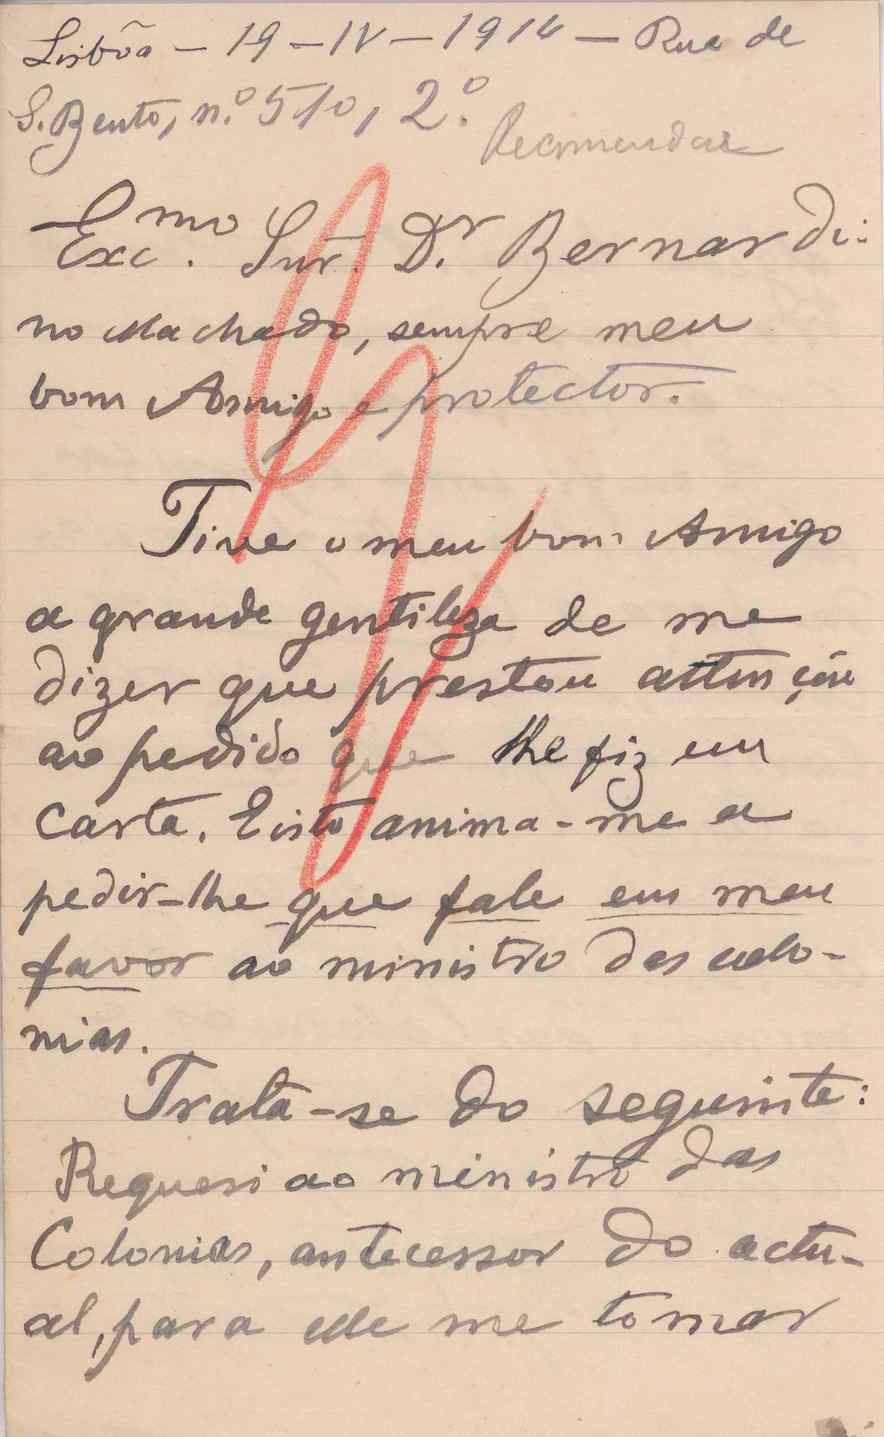 Lisbôa – 19 – IV – 1914 – Rua de
S. Bento, n.º 510, 2.º
Recomendar
Exc.mo Snr. D.r Bernardi-
no Machado, sempre meu
bom Amigo e protector.
Tive o meu bom Amigo
a grande gentileza de me
dizer que prestou attenção
ao pedido que lhe fiz em
carta. E isto anima-me a
pedir-lhe que fale em meu
favor ao ministro das colo-
nias.
Trata-se do seguinte:
Requeri ao ministro das
Colonias, antecessor do actu-
al, para elle me tomar